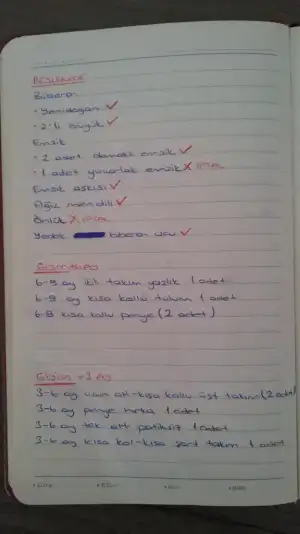 BESLENME
Biberon
- Yenidoğan ✓
- 2'li büyük ✓
Emzik
- 2 adet damaklı emzik ✓
- 1 adet yuvarlak emzik X İPTAL
Emzik askısı ✓
Ağız mendili ✓
Önlük X İPTAL
Yedek biberon ucu ✓
Giyim +6 Ay
6-9 ay ikili takım yazlık 1 adet
6-9 ay kısa kollu tulum 1 adet
6-9 kısa kollu penye (2 adet)
Giyim +3 Ay
3-6 ay uzun alt-kısa kollu üst takım (2 adet)
3-6 ay penye hırka 1 adet
3-6 ay tek alt patiksiz 1 adet
3-6 ay kısa kol-kısa şort takım 1 adet